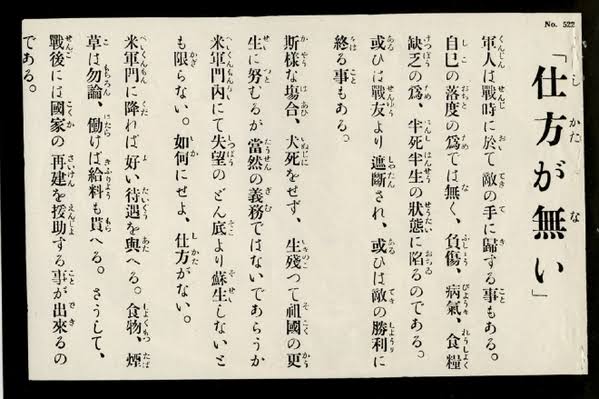 No. 522
「仕方が無い」
軍人は戰時に於て敵の手に歸する事もある。
自己の落度の爲では無く、負傷、病氣、食糧
缺乏の爲、半死半生の狀態に陷るのである。
或ひは戰友より遮斷され、或ひは敵の勝利に
終る事もある。
斯樣な場合、犬死をせず、生殘つて祖國の更
生に努むるが當然の義務ではないであらうか
米軍門内にて失望のどん底より蘇生しないと
も限らない。如何にせよ、仕方がない。
米軍門に降れば好い待遇を與へる。食物、煙
草は勿論、働けば給料も貰へる。さうして、
戰後には國家の再建を援助する事が出來るの
である。